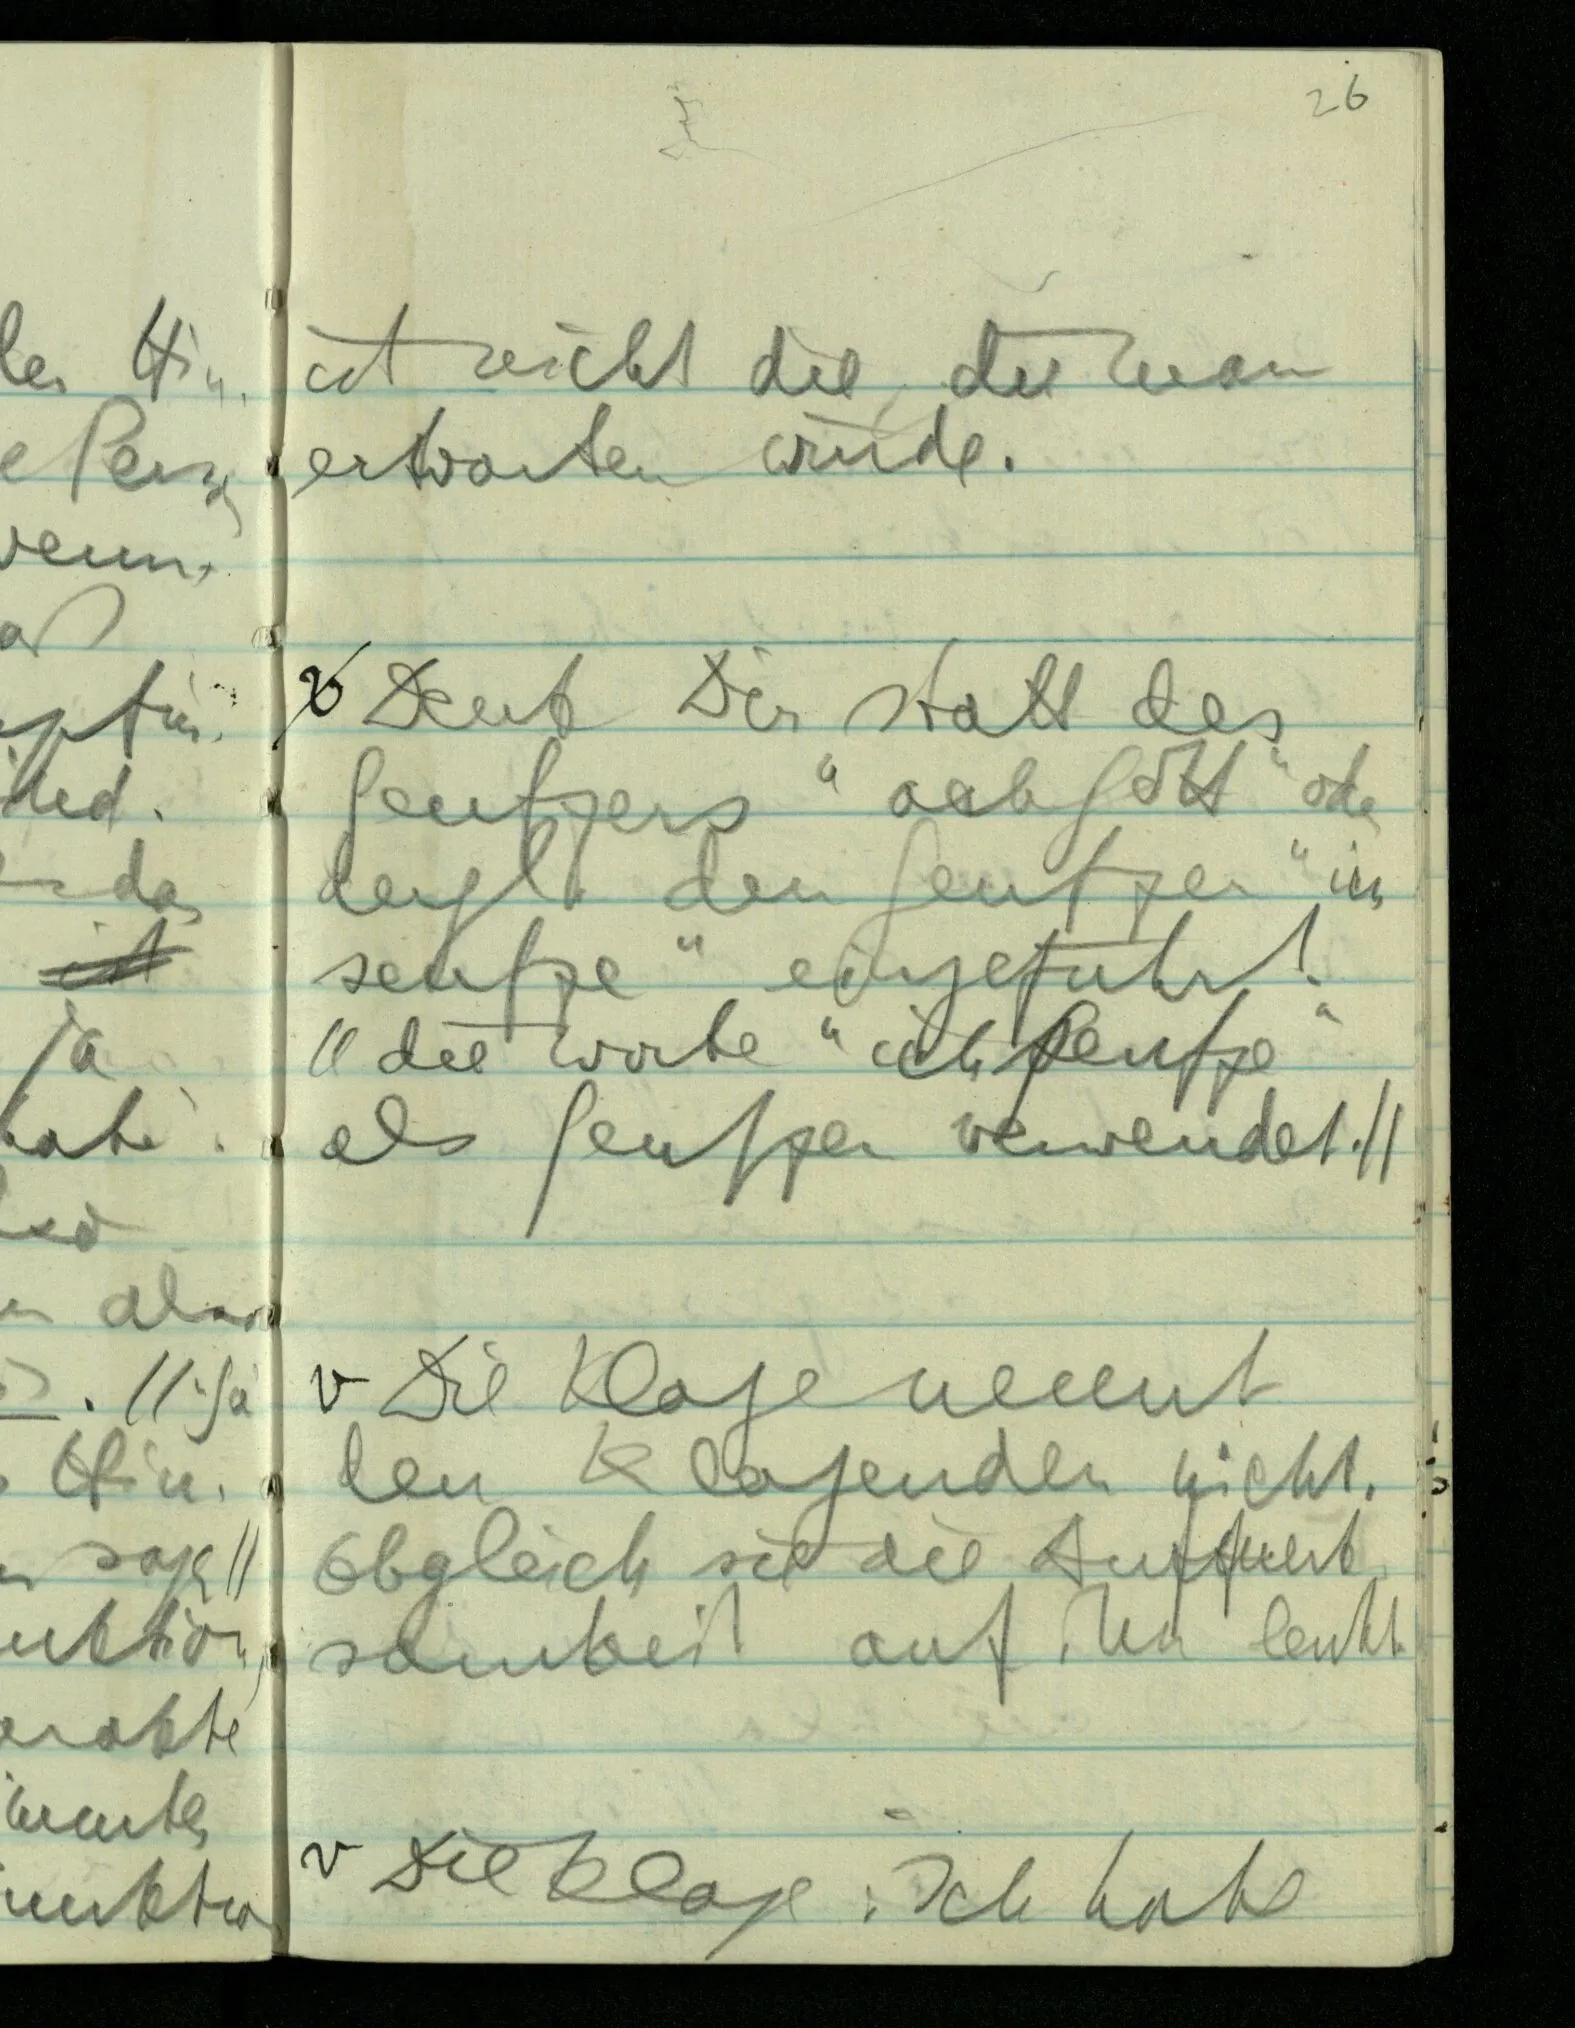 26
ist nicht die, die man
erwarten würde.
Denk Dir statt des
Seufzers " ach Gott " oder
dergl. den Seufzer " ich
seufze " eingeführt.
// die Worte " ich seufze "
als Seufzer verwendet. //
v Die Klage nennt
den Klagenden nicht.
Obgleich sie die Aufmerk
samkeit auf ihn lenkt
v Die Klage: Ich habe
ist
ja
habe.
. // "Ja
sage //